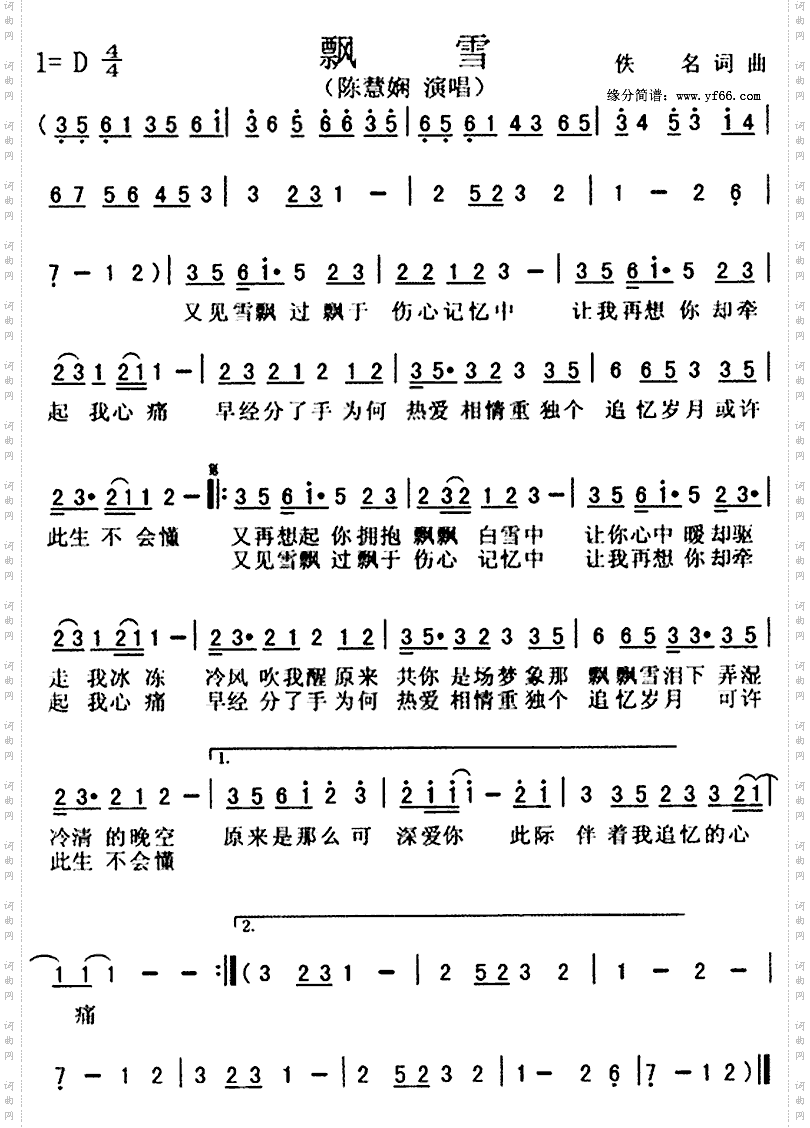 飘 雪
1= D 4/4
佚 名 词 曲
(陈慧娴 演唱)
缘分简谱：www.yf66.com
( 3 5 6 1 3 5 6 i | 3 6 5 6 6 3 5 | 6 5 6 1 4 3 6 5 | 3 4 5 3 i 4 |
6 7 5 6 4 5 3 | 3 2 3 1 － | 2 5 2 3 2 | 1 － 2 6 |
7 － 1 2 ) | 3 5 6 i• 5 2 3 | 2 2 1 2 3 － | 3 5 6 i• 5 2 3 |
又见雪飘 过 飘于 伤心记忆中 让我再想 你 却牵
2 3 1 2 1 1 － | 2 3 2 1 2 1 2 | 3 5• 3 2 3 3 5 | 6 6 5 3 3 5 |
起 我心 痛 早经分了手 为何 热爱 相情重 独个 追 忆岁月 或许
2 3• 2 1 1 2 － |: 3 5 6 i• 5 2 3 | 2 3 2 1 2 3 － | 3 5 6 i• 5 2 3• |
此生 不 会 懂 又再想起 你 拥抱 飘飘 白雪中 让你心中 暖 却驱
又见雪飘 过 飘于 伤心 记忆中 让我再想 你 却牵
2 3 1 2 1 1 － | 2 3• 2 1 2 1 2 | 3 5• 3 2 3 3 5 | 6 6 5 2 3• 3 5 |
走 我冰 冻 冷风 吹我醒 原来 共你 是场梦 象那 飘 飘雪泪下 弄湿
起 我心 痛 早经 分了手 为何 热爱 相情重 独个 追 忆岁月 可许
1.
2 3• 2 1 2 － | 3 5 6 i 2 3 | 2 i i i － 2 i | 3 3 5 2 3 3 2 1 |
冷清 的晚空 原来是那么 可 深爱你 此际 伴 着我追忆的心
此生 不会懂
2.
1 1 1 － － :| ( 3 2 3 1 － | 2 5 2 3 2 | 1 － 2 － |
痛
7 － 1 2 | 3 2 3 1 － | 2 5 2 3 2 | 1 － 2 6 | 7 － 1 2 ) ‖
词曲网